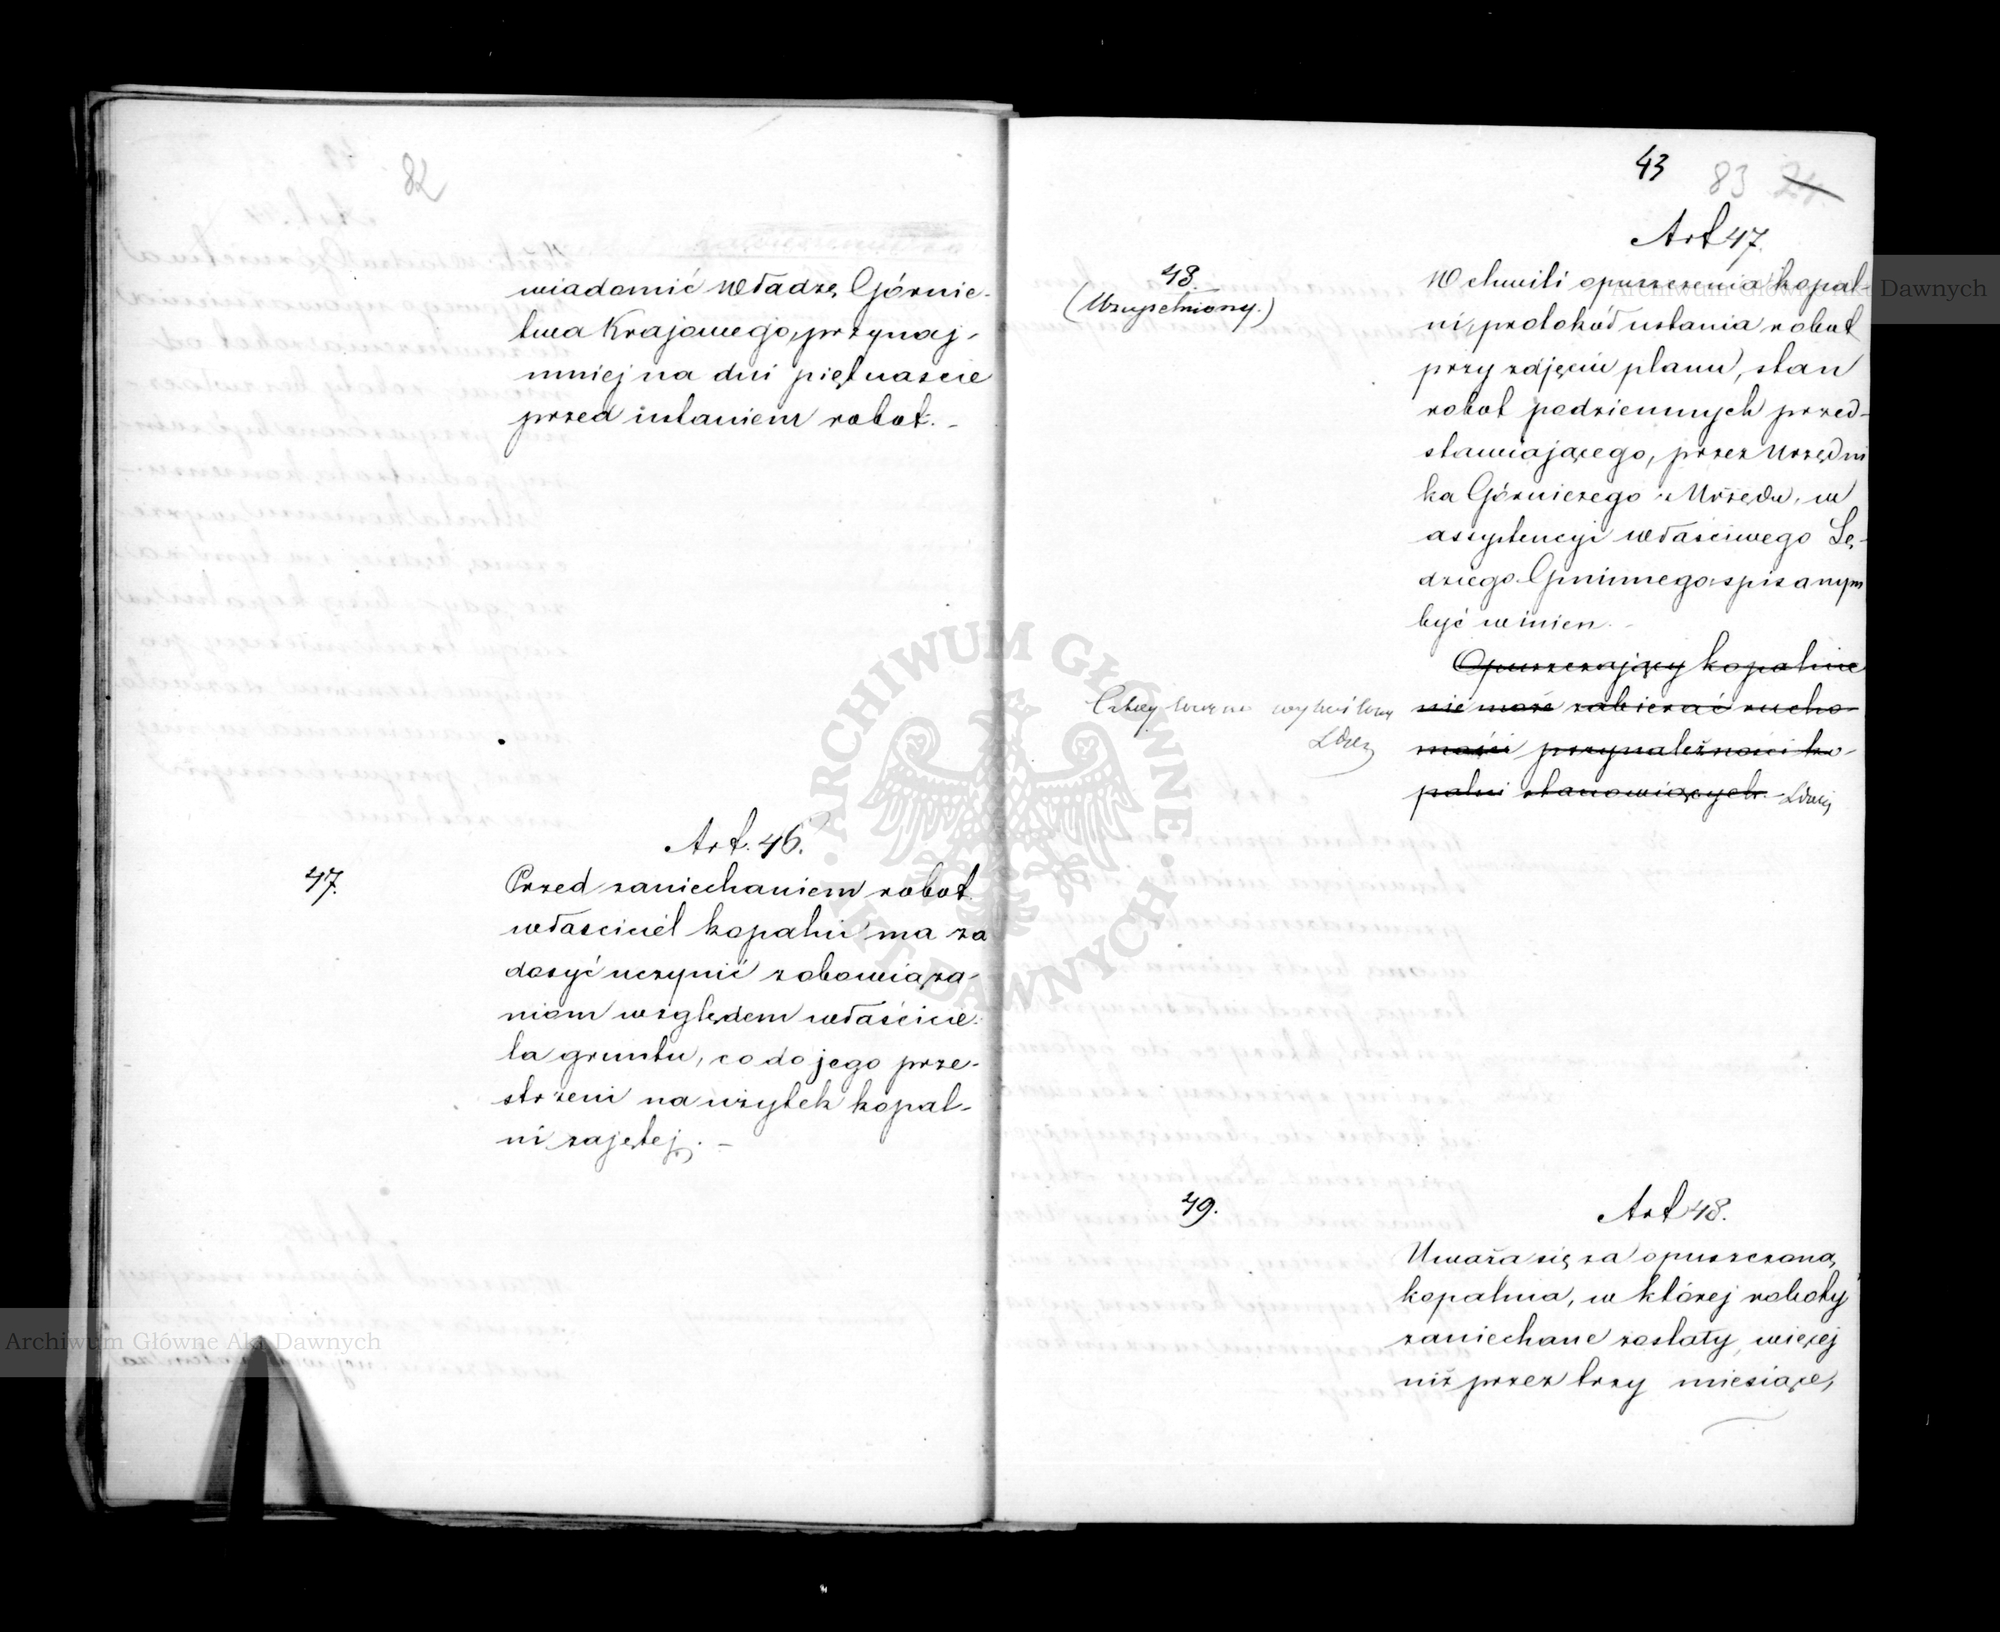 82
wiadomić Władzę Górnic-
twa Krajowego, przynaj-
mniej na dni piętnaście
przed ustaniem robot. -
Art. 46.
47.
Przed zaniechaniem robot
właściciel kopalni ma za
dosyć uczynić zobowiąza-
niom względem właścicie-
la gruntu, co do jego prze-
strzeni na użytek kopal-
ni zajętej. -
43 83 24
Art 47.
48.
(Uzupełniony.)
W chwili opuszczenia kopal-
ni, protokół ustania robot
przy zdjęciu planu, stan
robot podziemnych przed-
stawiającego, przez Urzędni
ka Górniczego z Urzędu, w
assystencyi właściwego Sę-
dziego Gminnego spisanym
być winien. -
Opuszczający kopalnie
nie może zabierać rucho-
mości przynależności ko-
palni stanowiących. -
Cztery wiersze
49.
Art 48.
Uważa się za opuszczoną,
kopalnia, w której roboty
zaniechane zostały, więcej
niż przez trzy miesiące,
ARCHIWUM GŁÓWNE AKT DAWNYCH
Archiwum Główne Akt Dawnych
Archiwum Główne Akt Dawnych